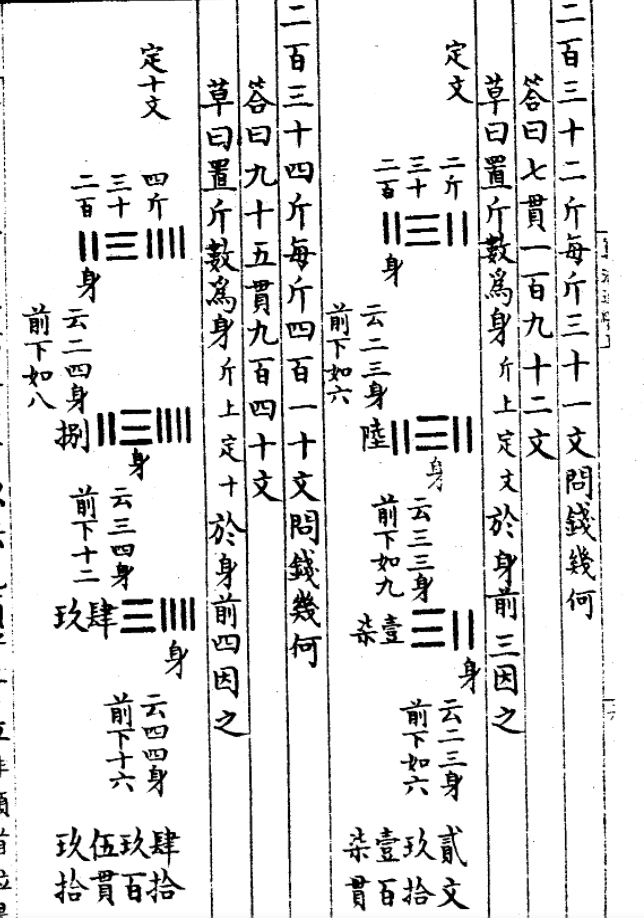 二百三十二斤每斤三十一文問錢幾何
答曰七貫一百九十二文
草曰置斤數爲身斤上定文於身前三因之
定文
二斤
三十
二百
身
云二三身
前下如六
陸
身
云三三身
前下如九
柒壹
身
云二三身
前下如六
貳文
玖拾
壹百
柒貫
二百三十四斤每斤四百一十文問錢幾何
答曰九十五貫九百四十文
草曰置斤數爲身斤上定十於身前四因之
定十文
四斤
三十
二百
身
云二四身
前下如八
捌
身
云三四身
前下十二
玖肆
身
云四四身
前下十六
肆拾
玖百
伍貫
玖拾